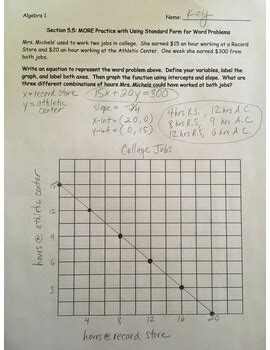 Algebra 1
Name: Key
Section 5.5: MORE Practice with Using Standard Form for Word Problems
Mrs. Michels' used to work two jobs in college. She earned $15 an hour working at a Record
Store and $20 an hour working at the Athletic Center. One week she earned $300 from
both jobs.
Write an equation to represent the word problem above. Define your variables, label the
graph, and label both axes. Then graph the function using intercepts and slope. What are
three different combinations of hours Mrs. Michels could have worked at both jobs?
x=record store
y=athletic center
15x + 20y = 300
slope = -3/4
x-int = (20,0)
y-int = (0,15)
4 hrs R.S., 12 hrs A.C.
8 hrs R.S., 9 hrs A.C.
12 hrs R.S., 6 hrs A.C.
College Jobs
hours @ athletic center
15
12
9
6
3
4
8
12
16
20
hours @ record store